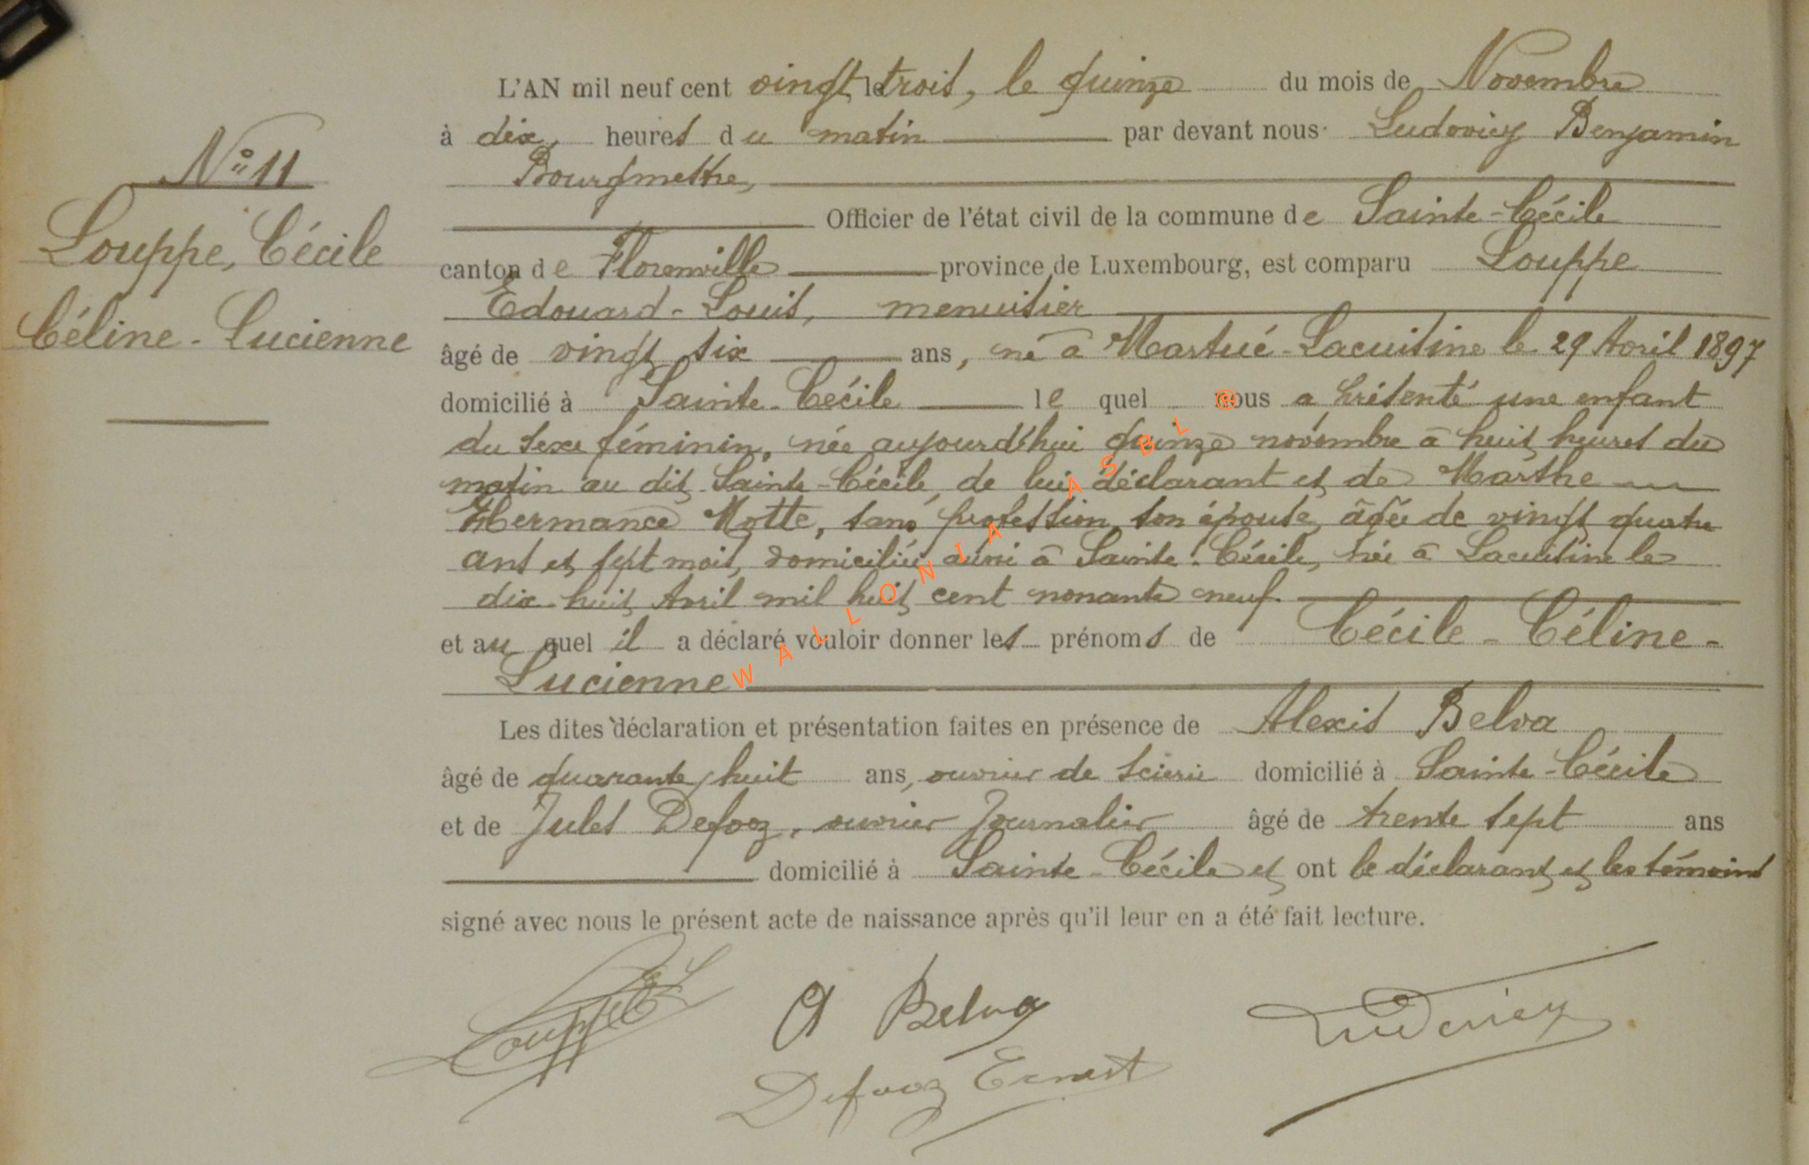 N° 11
Louppe, Cécile
Céline - Lucienne
L'AN mil neuf cent vingt trois, le quinze du mois de Novembre
à dix heures du matin par devant nous Ludovicy Benjamin
Bourgmestre,
Officier de l'état civil de la commune de Sainte-Cécile
canton de Florenville province de Luxembourg, est comparu Louppe
Edouard-Louis, menuisier
âgé de vingt six ans, né à Martué-Lacuisine le 29 Avril 1897
domicilié à Sainte-Cécile lequel nous a présenté une enfant
du sexe féminin, née aujourd'hui quinze novembre à huit heures du
matin au dit Sainte-Cécile, de lui déclarant et de Marthe
Hermance Motte, sans profession, son épouse, âgée de vingt quatre
ans et sept mois, domiciliée aussi à Sainte-Cécile, née à Lacuisine le
dix huit Avril mil huit cent nonante neuf.
et auquel il a déclaré vouloir donner les prénoms de Cécile-Céline-
Lucienne
Les dites déclaration et présentation faites en présence de Alexis Belva
âgé de quarante huit ans, ouvrier de scierie domicilié à Sainte-Cécile
et de Jules Defooz, ouvrier Journalier âgé de trente sept ans
domicilié à Sainte-Cécile et ont le déclarant et les témoins
signé avec nous le présent acte de naissance après qu'il leur en a été fait lecture.
Louppe A Belva Ludovicy
Defooz Ernest
WALLONIA ASBL ©